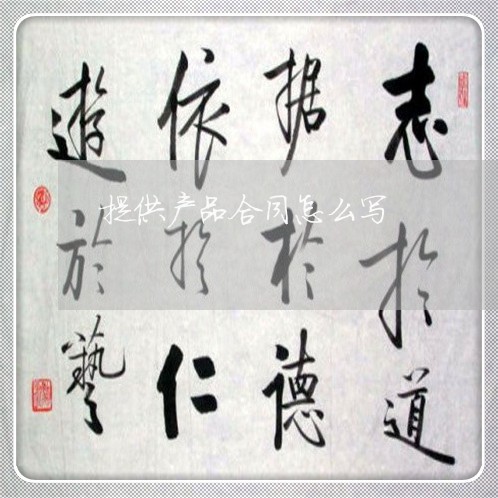 志扵道
据扵德
依扵仁
遊於藝
提供产品合同怎么写